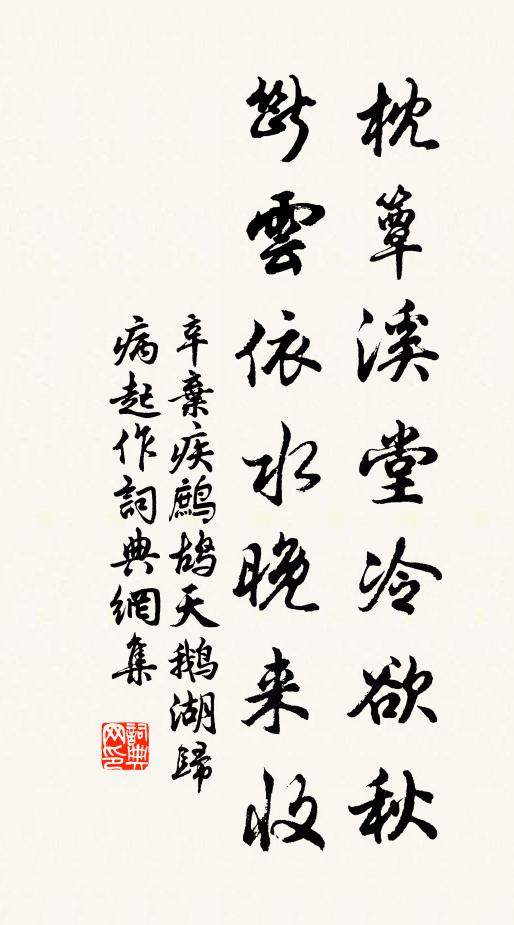 枕簟溪堂冷欲秋
斷雲依水晚来收
辛棄疾鷓鴣天鵝湖歸
病起作詞典網集
詞典
网印